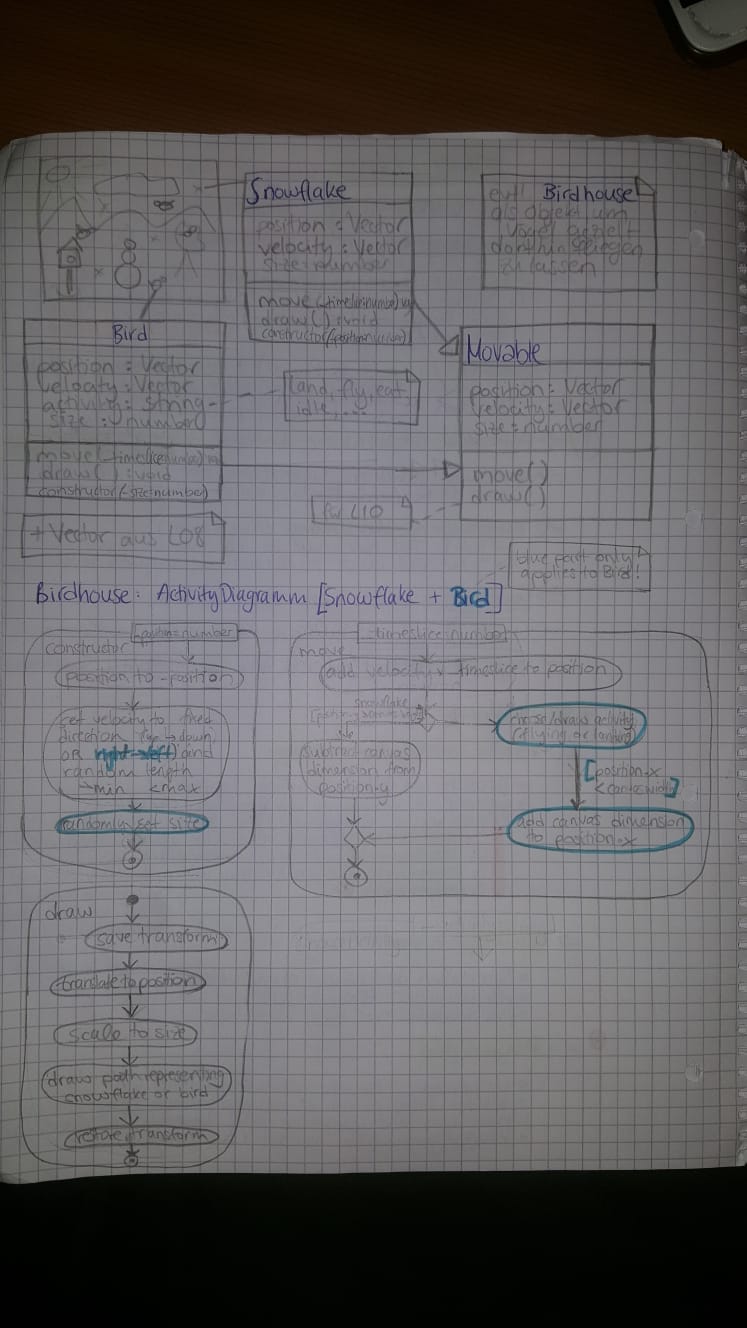 Snowflake
position : Vector
velocity : Vector
size : number
move (_timeslice:number)
draw() : void
constructor(_position:number)
Birdhouse
evtl.
als Objekt um
Vögel gezielt
dorthin fliegen
zu lassen
Bird
position : Vector
velocity : Vector
activity : string
size : number
move (_timeslice:number)
draw() : void
constructor(_size:number)
land, fly, eat,
idle, ...
Movable
position : Vector
velocity : Vector
size : number
move()
draw()
für L10
+ Vector aus L08
blue part only
applies to Bird!
Birdhouse: ActivityDiagramm [Snowflake + Bird]
constructor
_position:number
position to _position
set velocity to fixed
direction (up → down
OR right → left) and
random length
>min <max
randomly set size
move
_timeslice:number
add velocity x timeslice to position
snowflake
subtract canvas
dimension from
position.y
choose/draw activity
(flying or landing)
[position.x
add canvas dimension
to position.x
draw
save transform
translate to position
scale to size
draw path representing
snowflake or bird
restore transform